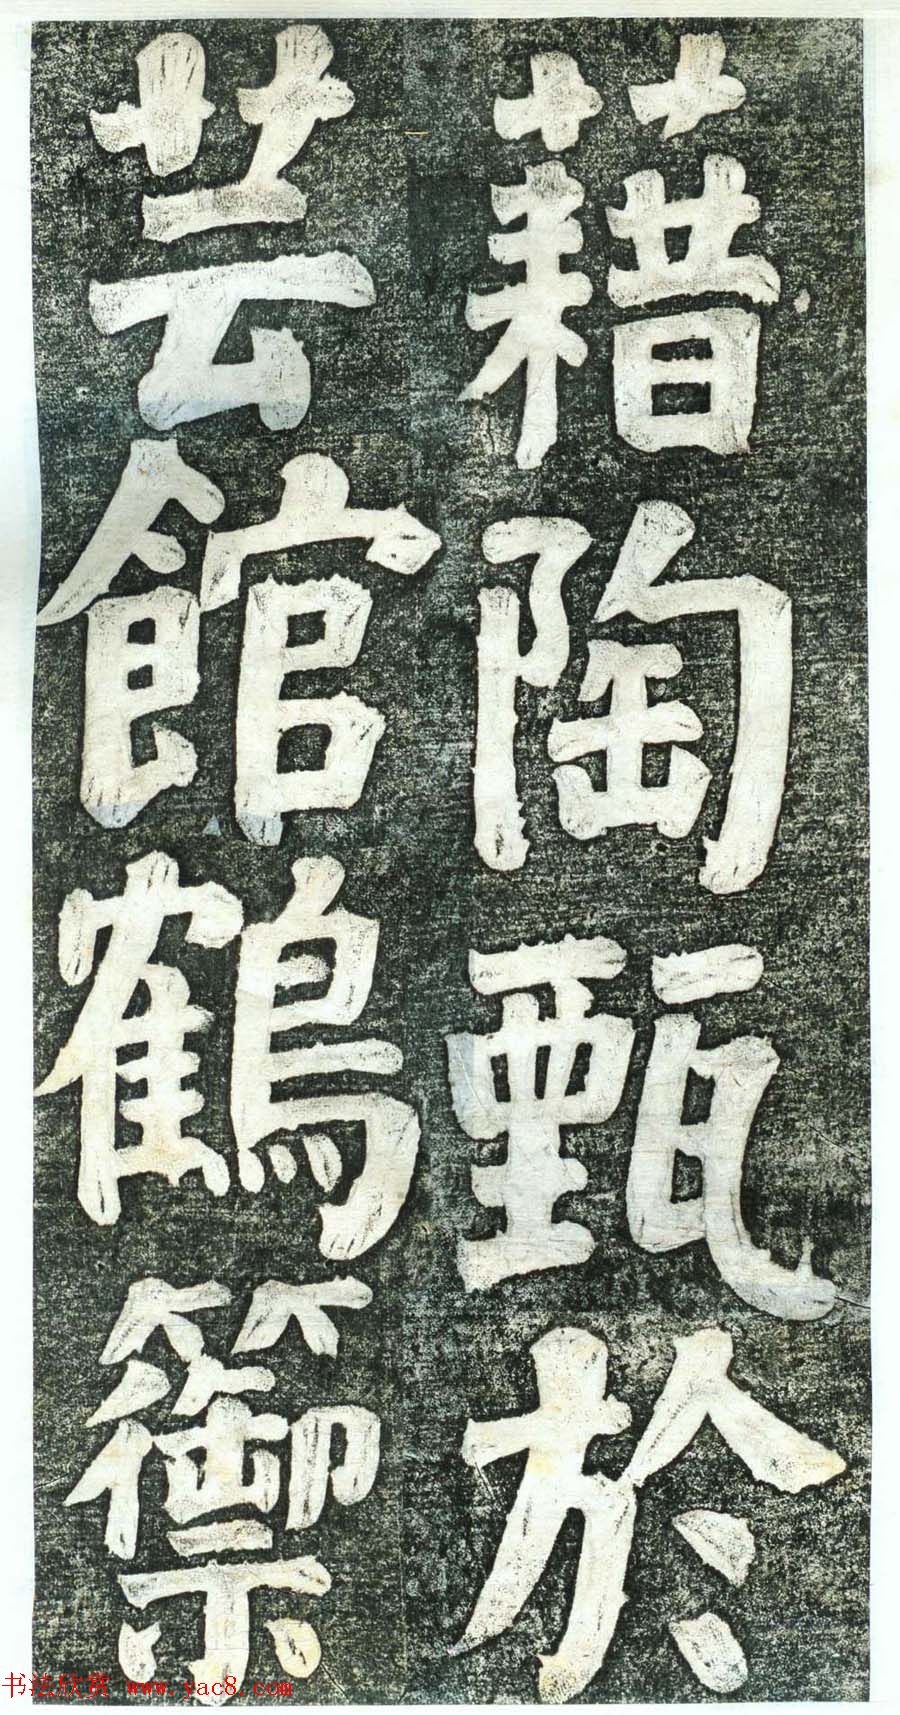 藉陶甄於
芸館鶴籞
书法欣赏 www.yac8.com